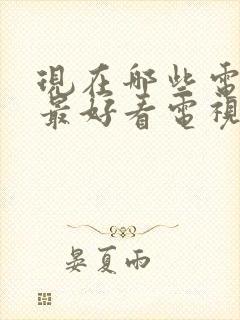 現在哪些電
最好看電視
晏夏雨